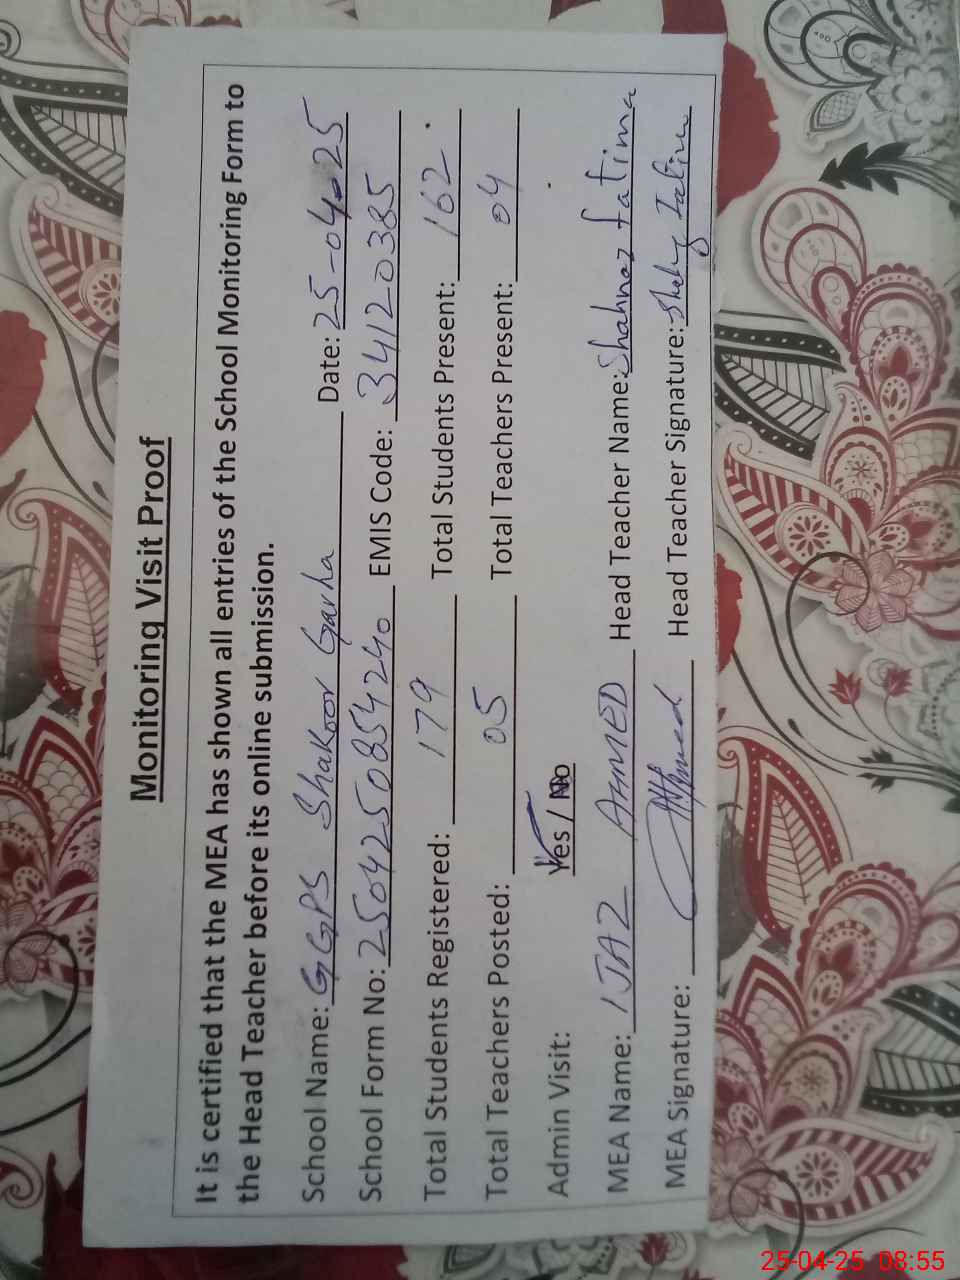 Monitoring Visit Proof
It is certified that the MEA has shown all entries of the School Monitoring Form to
the Head Teacher before its online submission.
School Name: GGPS Shakoor Garha Date: 25-04-25
School Form No: 250425085424o EMIS Code: 34120385
Total Students Registered: 179 Total Students Present: 162
Total Teachers Posted: 05 Total Teachers Present: 04
Admin Visit: Yes / No
MEA Name: IJAZ AHMED Head Teacher Name: Shahnaz fatima
MEA Signature: Ahmed Head Teacher Signature:
25-04-25 08:55